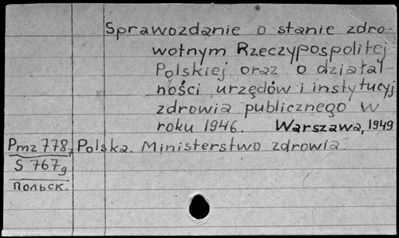 Sprawozdanie o stanie zdro-
wotnym Rzeczypospolitej
Polskiej oraz o działal-
ności urzędów i instytucyj
zdrowia publicznego w
roku 1946. Warszawa, 1949
Pmz 778, Polska. Ministerstwo zdrowia.
S 767g
польск.